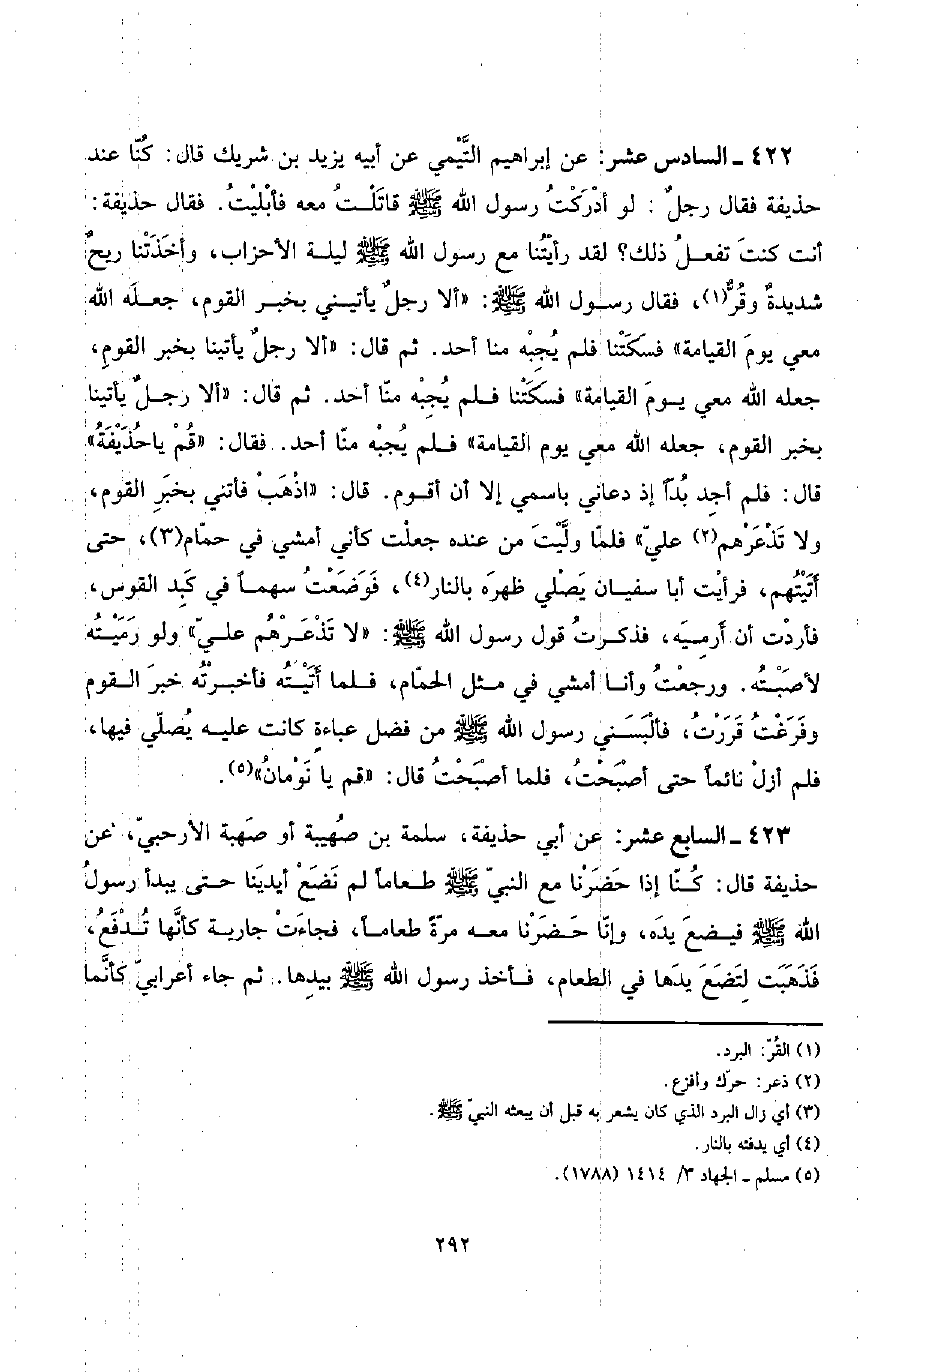 ٤٢٢ ـ السادس عشر: عن إبراهيم التَّيْمي عن أبيه يزيد بن شريك قال: كُنّا عند
حذيفة فقال رجلٌ : لو أدْرَكْتُ رسول الله ﷺ قاتَلْتُ معه فأبْلَيْتُ. فقال حذيفة:
أنت كنتَ تفعلُ ذلك؟ لقد رأيْتُنا مع رسول الله ﷺ ليلة الأحزاب، وأخَذَتْنا ريحٌ
شديدةٌ وقُرٌّ(١)، فقال رسول الله ﷺ: «ألا رجلٌ يأتيني بخبر القوم، جعلَه الله
معي يومَ القيامة» فسَكَتْنا فلم يُجِبْه منا أحد. ثم قال: «ألا رجلٌ يأتينا بخبر القومِ،
جعله الله معي يومَ القيامة» فسَكَتْنا فلم يُجِبْه منّا أحد. ثم قال: «ألا رجلٌ يأتينا
بخبر القوم، جعله الله معي يوم القيامة» فلم يُجبْه منّا أحد.. فقال: «قُمْ ياحُذَيْفَةُ»
قال: فلم أجد بُدّاً إذ دعاني باسمي إلا أن أقوم. قال: «اذْهَبْ فأتني بخبَرِ القوم،
ولا تَذْعَرْهم(٢) عليّ» فلمّا ولَّيْتَ من عنده جعلْت كأني أمشي في حمّام(٣)، حتى
أتَيْتُهم، فرأيْت أبا سفيان يَصْلي ظهرَه بالنار(٤)، فَوَضَعْتُ سهماً في كَبِد القوس،
فأردْت أن أَرمِيَه، فذكرتُ قول رسول الله ﷺ: «لا تَذْعَرْهُم عليّ» ولو رَمَيْتُه
لأصَبْتُه. ورجعْتُ وأنا أمشي في مثل الحمّام، فلما أتَيْتُه فأخبرْتُه خبرَ القوم
وفَرَغْتُ قَرَرْتُ، فألْبَسَني رسول الله ﷺ من فضل عباءةٍ كانت عليه يُصلّي فيها،
فلم أزلْ نائماً حتى أصْبَحْتُ، فلما أصْبَحْتُ قال: «قم يا نَوْمانُ»(٥).
٤٢٣ ـ السابع عشر: عن أبي حذيفة، سلمة بن صُهيبة أو صَهبة الأرحبيّ، عن
حذيفة قال: كُنّا إذا حَضَرْنا مع النبيّ ﷺ طعاماً لم نَضَعْ أيدينا حتى يبدأ رسولُ
الله ﷺ فيضعَ يدَه، وإنّا حَضَرْنا معه مرّةً طعاماً، فجاءَتْ جارية كأنَّها تُدْفَعُ،
فَذَهَبَت لِتَضَعَ يدَها في الطعام، فأخذ رسول الله ﷺ بيدِها. ثم جاء أعرابيّ كأنَّما
(١) القُرّ: البرد.
(٢) ذعر: حرّك وأفزع.
(٣) أي زال البرد الذي كان يشعر به قبل أن يبعثه النبيّ ﷺ.
(٤) أي يدفئه بالنار.
(٥) مسلم ـ الجهاد ٣/ ١٤١٤ (١٧٨٨).
٢٩٢